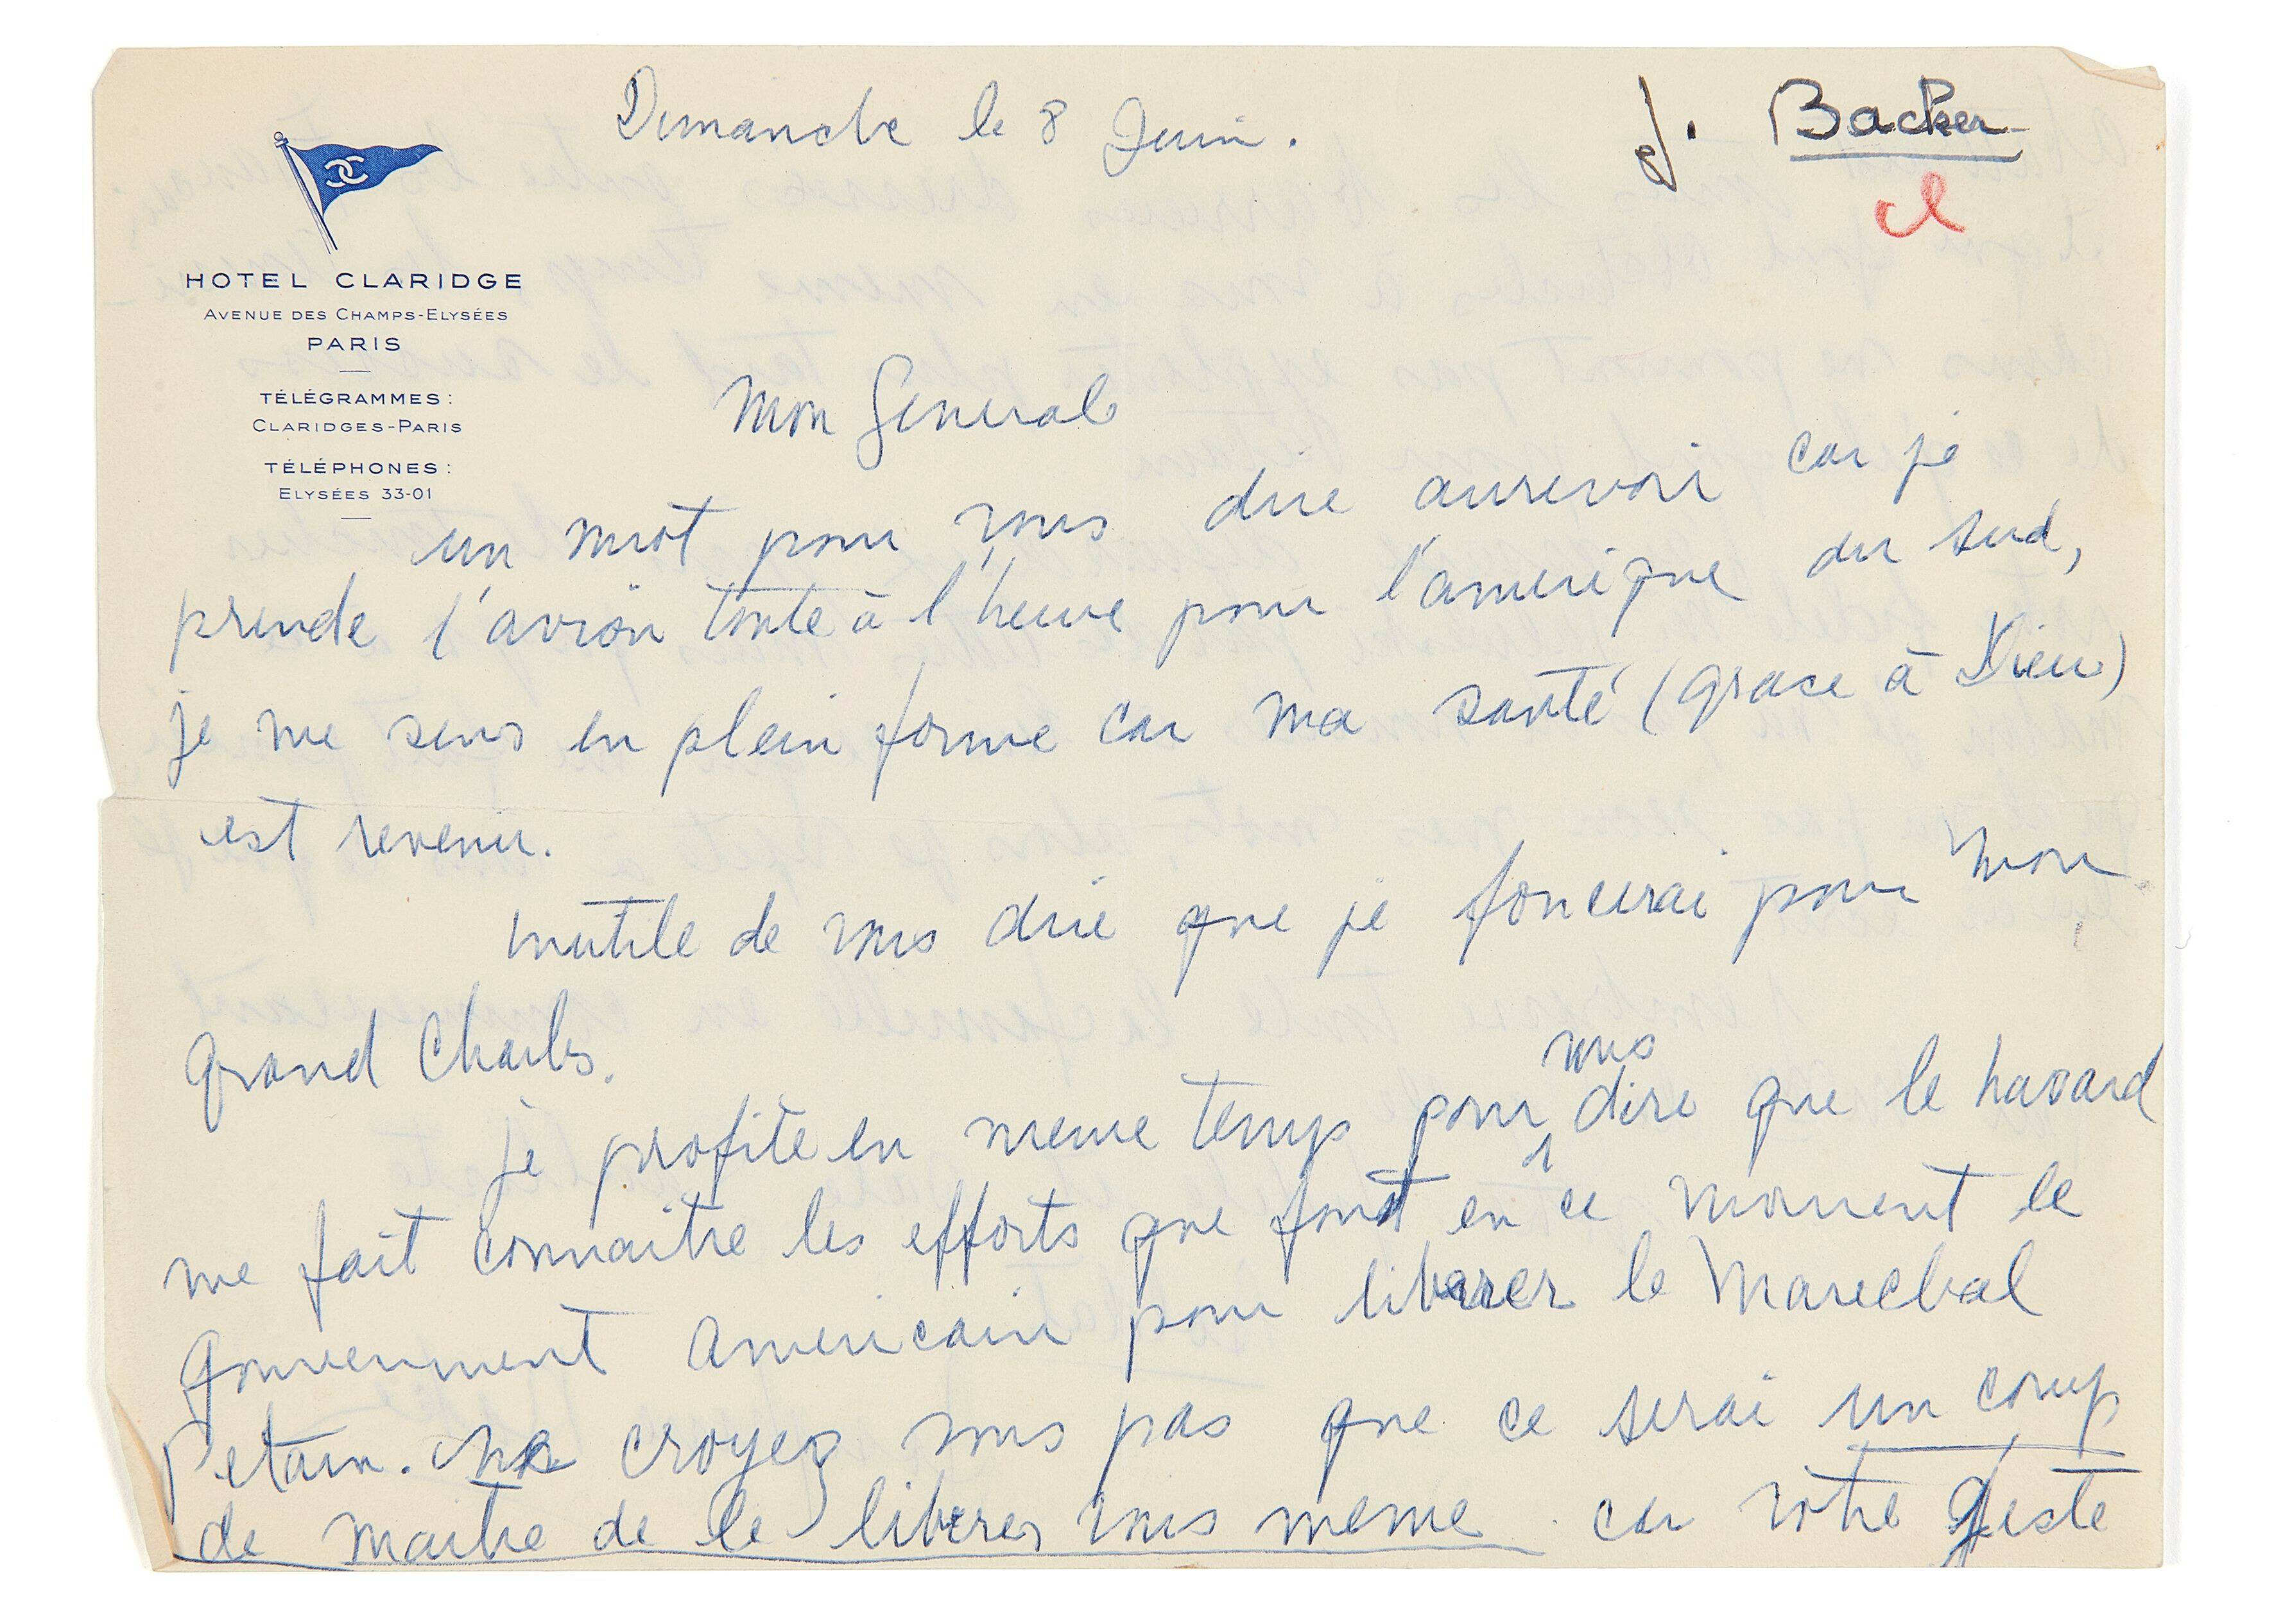 Dimanche le 8 Juin.
J. Backer
HOTEL CLARIDGE
AVENUE DES CHAMPS-ELYSÉES
PARIS
TÉLÉGRAMMES :
CLARIDGES-PARIS
TÉLÉPHONES :
ELYSÉES 33-01
Mon General
un mot pour vous dire aurevoir car je
prende l'avion toute à l'heure pour l'amerique du sud,
je me sens en plein forme car ma santé (grace à Dieu)
est revenu.
inutile de vous dire que je foncerai pour mon
grand Charles.
je profite en meme temps pour vous dire que le hasard
me fait connaitre les efforts que font en ce moment le
gouvernement americain pour liberer le Marechal
Petain. ne croyez vous pas que ce serai un coup
de maitre de le liberer vous meme car votre geste